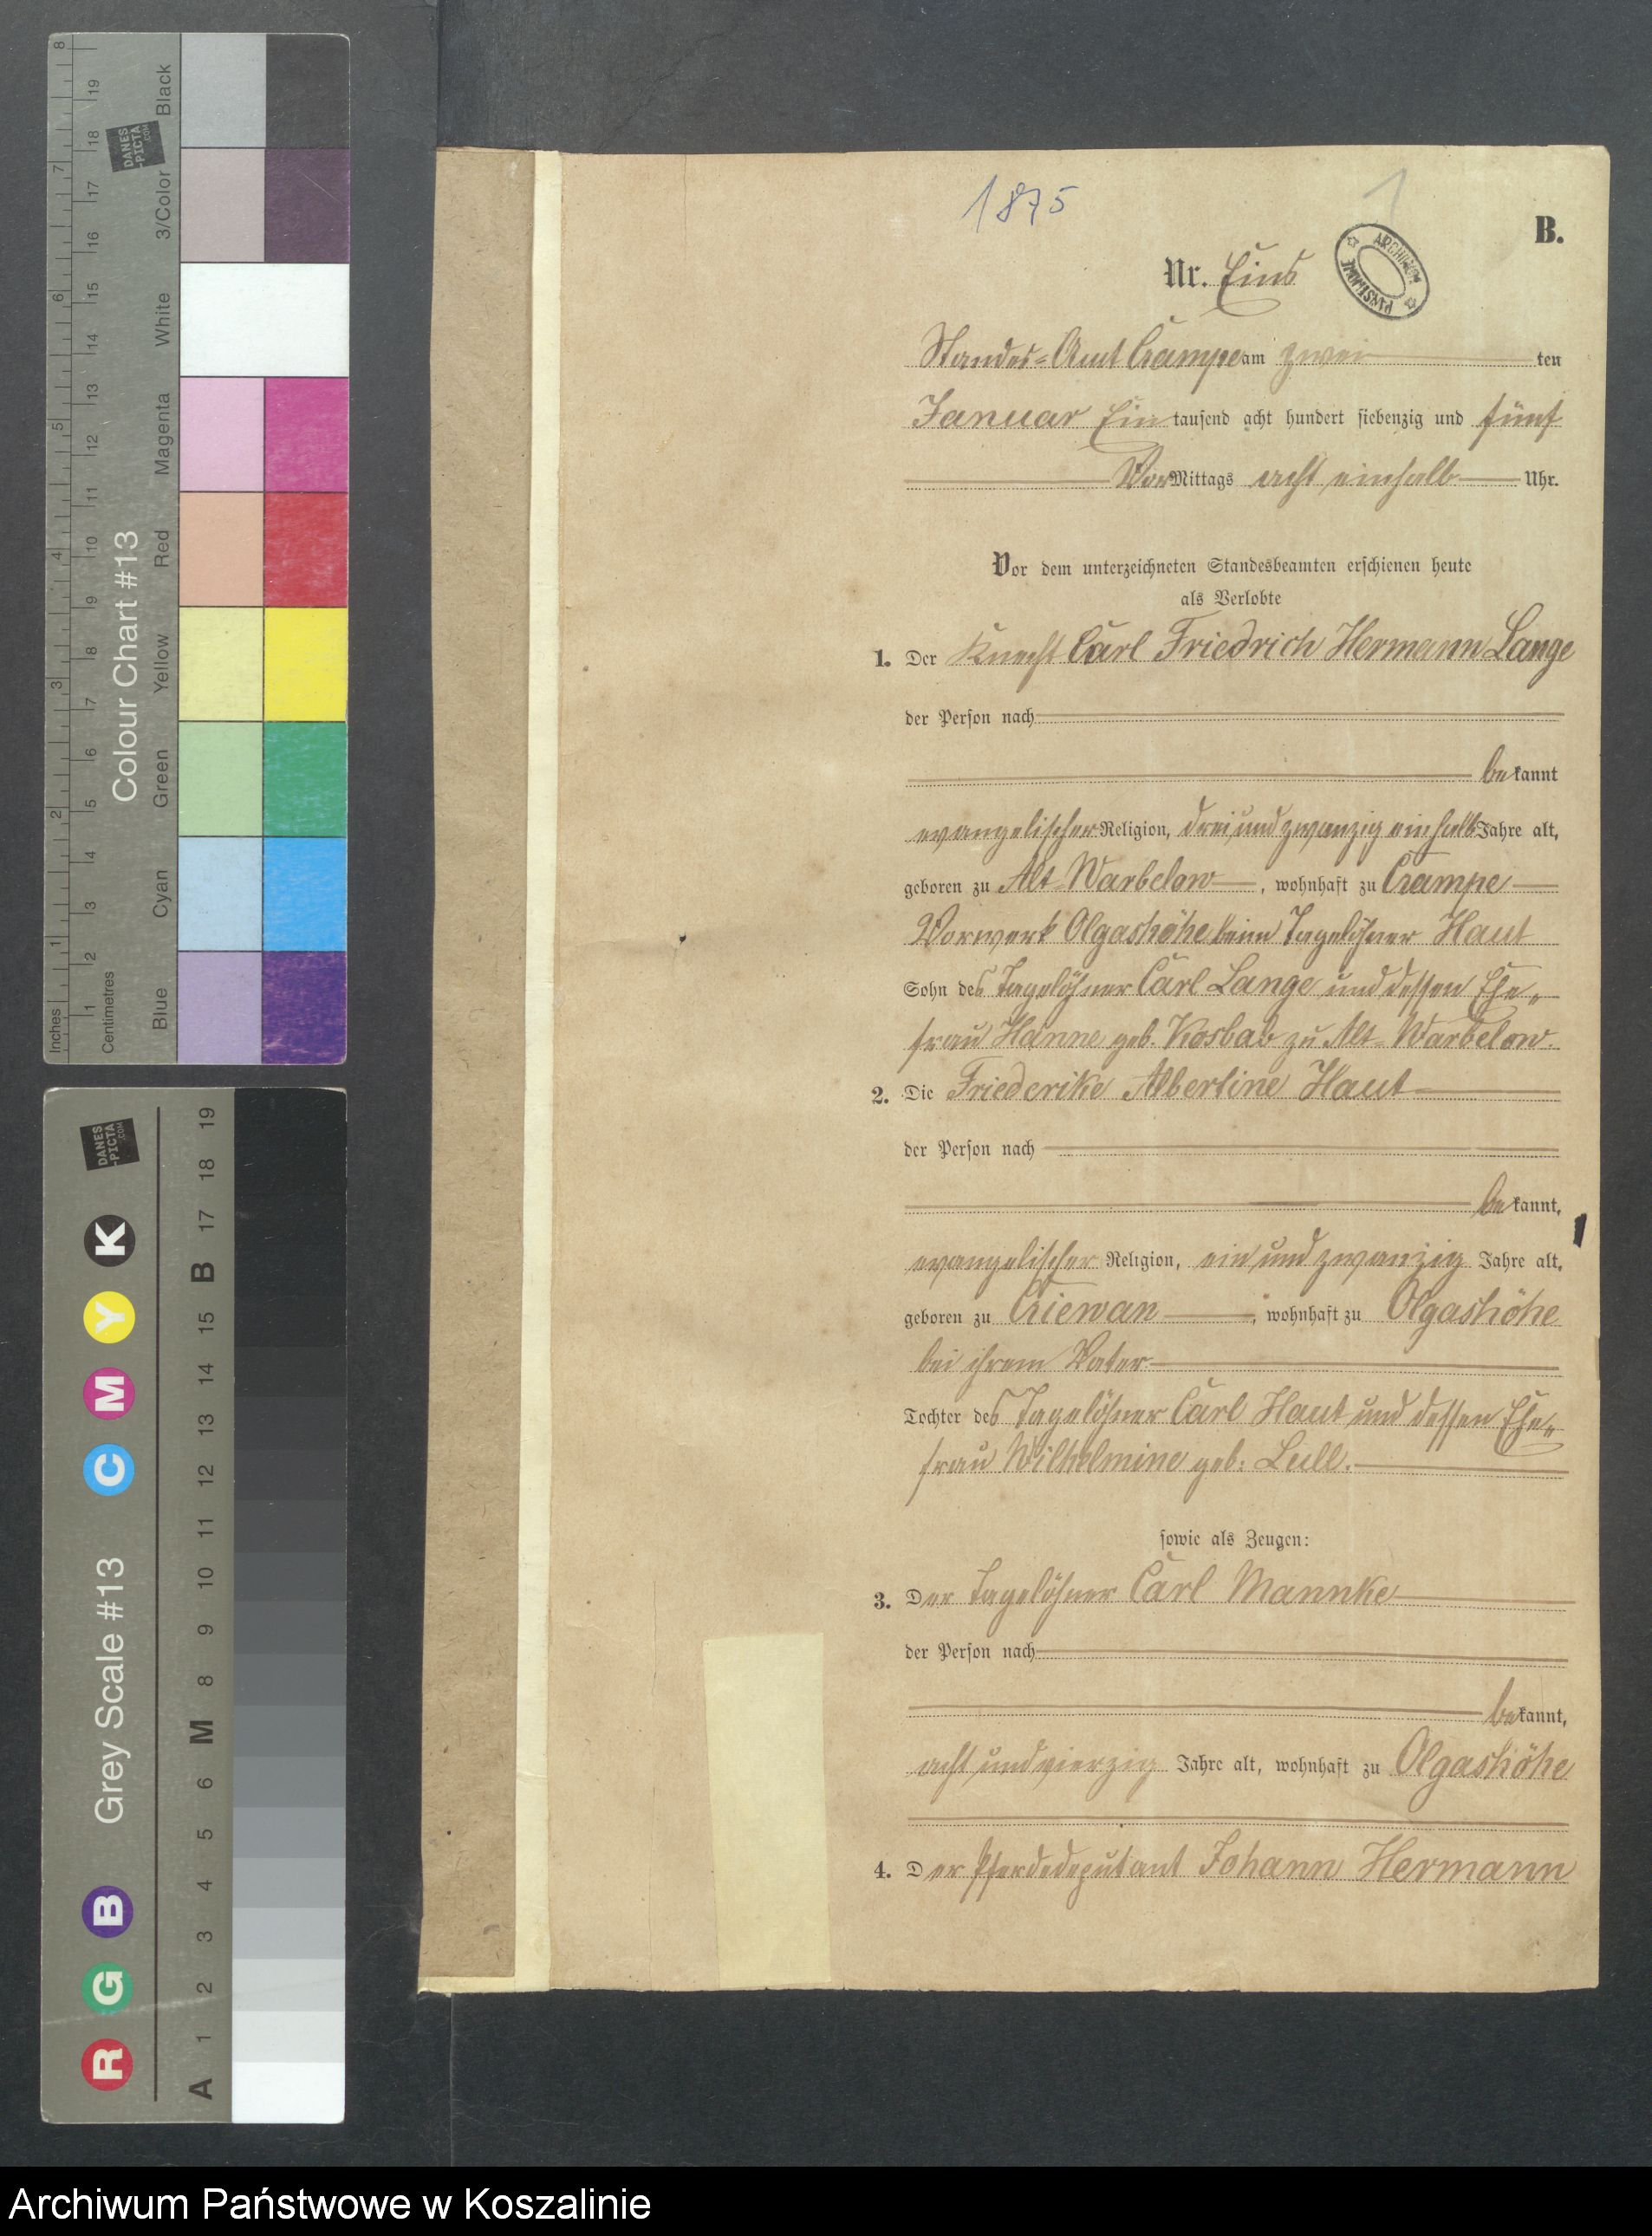 1875
1
B.
Nr. Eins
ARCHIWUM PAŃSTWOWE
Standes=Amt Crampe am zwei ten
Januar Ein tausend acht hundert siebenzig und fünf
Vor Mittags acht einhalb Uhr.
Vor dem unterzeichneten Standesbeamten erschienen heute
als Verlobte
1. Der Knecht Carl Friedrich Hermann Lange
der Person nach
be kannt
evangelischer Religion, drei und zwanzig einhalb Jahre alt,
geboren zu Alt-Warbelow, wohnhaft zu Crampe
Vorwerk Olgashöhe beim Tagelöhner Haut
Sohn des Tagelöhner Carl Lange und dessen Ehe„
frau Hanne geb. Kosbab zu Alt-Warbelow.
2. Die Friederike Albertine Haut
der Person nach
be kannt,
evangelischer Religion, ein und zwanzig Jahre alt,
geboren zu Criewan, wohnhaft zu Olgashöhe
bei ihrem Vater
Tochter des Tagelöhner Carl Haut und dessen Ehe„
frau Wilhelmine geb: Lull.
sowie als Zeugen:
3. Der Tagelöhner Carl Mannke
der Person nach
be kannt,
acht und vierzig Jahre alt, wohnhaft zu Olgashöhe
4. Der Pferdedeputant Johann Hermann
Inches 1 2 3 4 5 6 7 8
Centimetres 1 2 3 4 5 6 7 8 9 10 11 12 13 14 15 16 17 18 19
Colour Chart #13
Blue Cyan Green Yellow Red Magenta White 3/Color Black
DANES
-PICTA
.COM
R G B Grey Scale #13 C M Y K
DANES
-PICTA
.COM
A 1 2 3 4 5 6 M 8 9 10 11 12 13 14 15 B 17 18 19
Archiwum Państwowe w Koszalinie